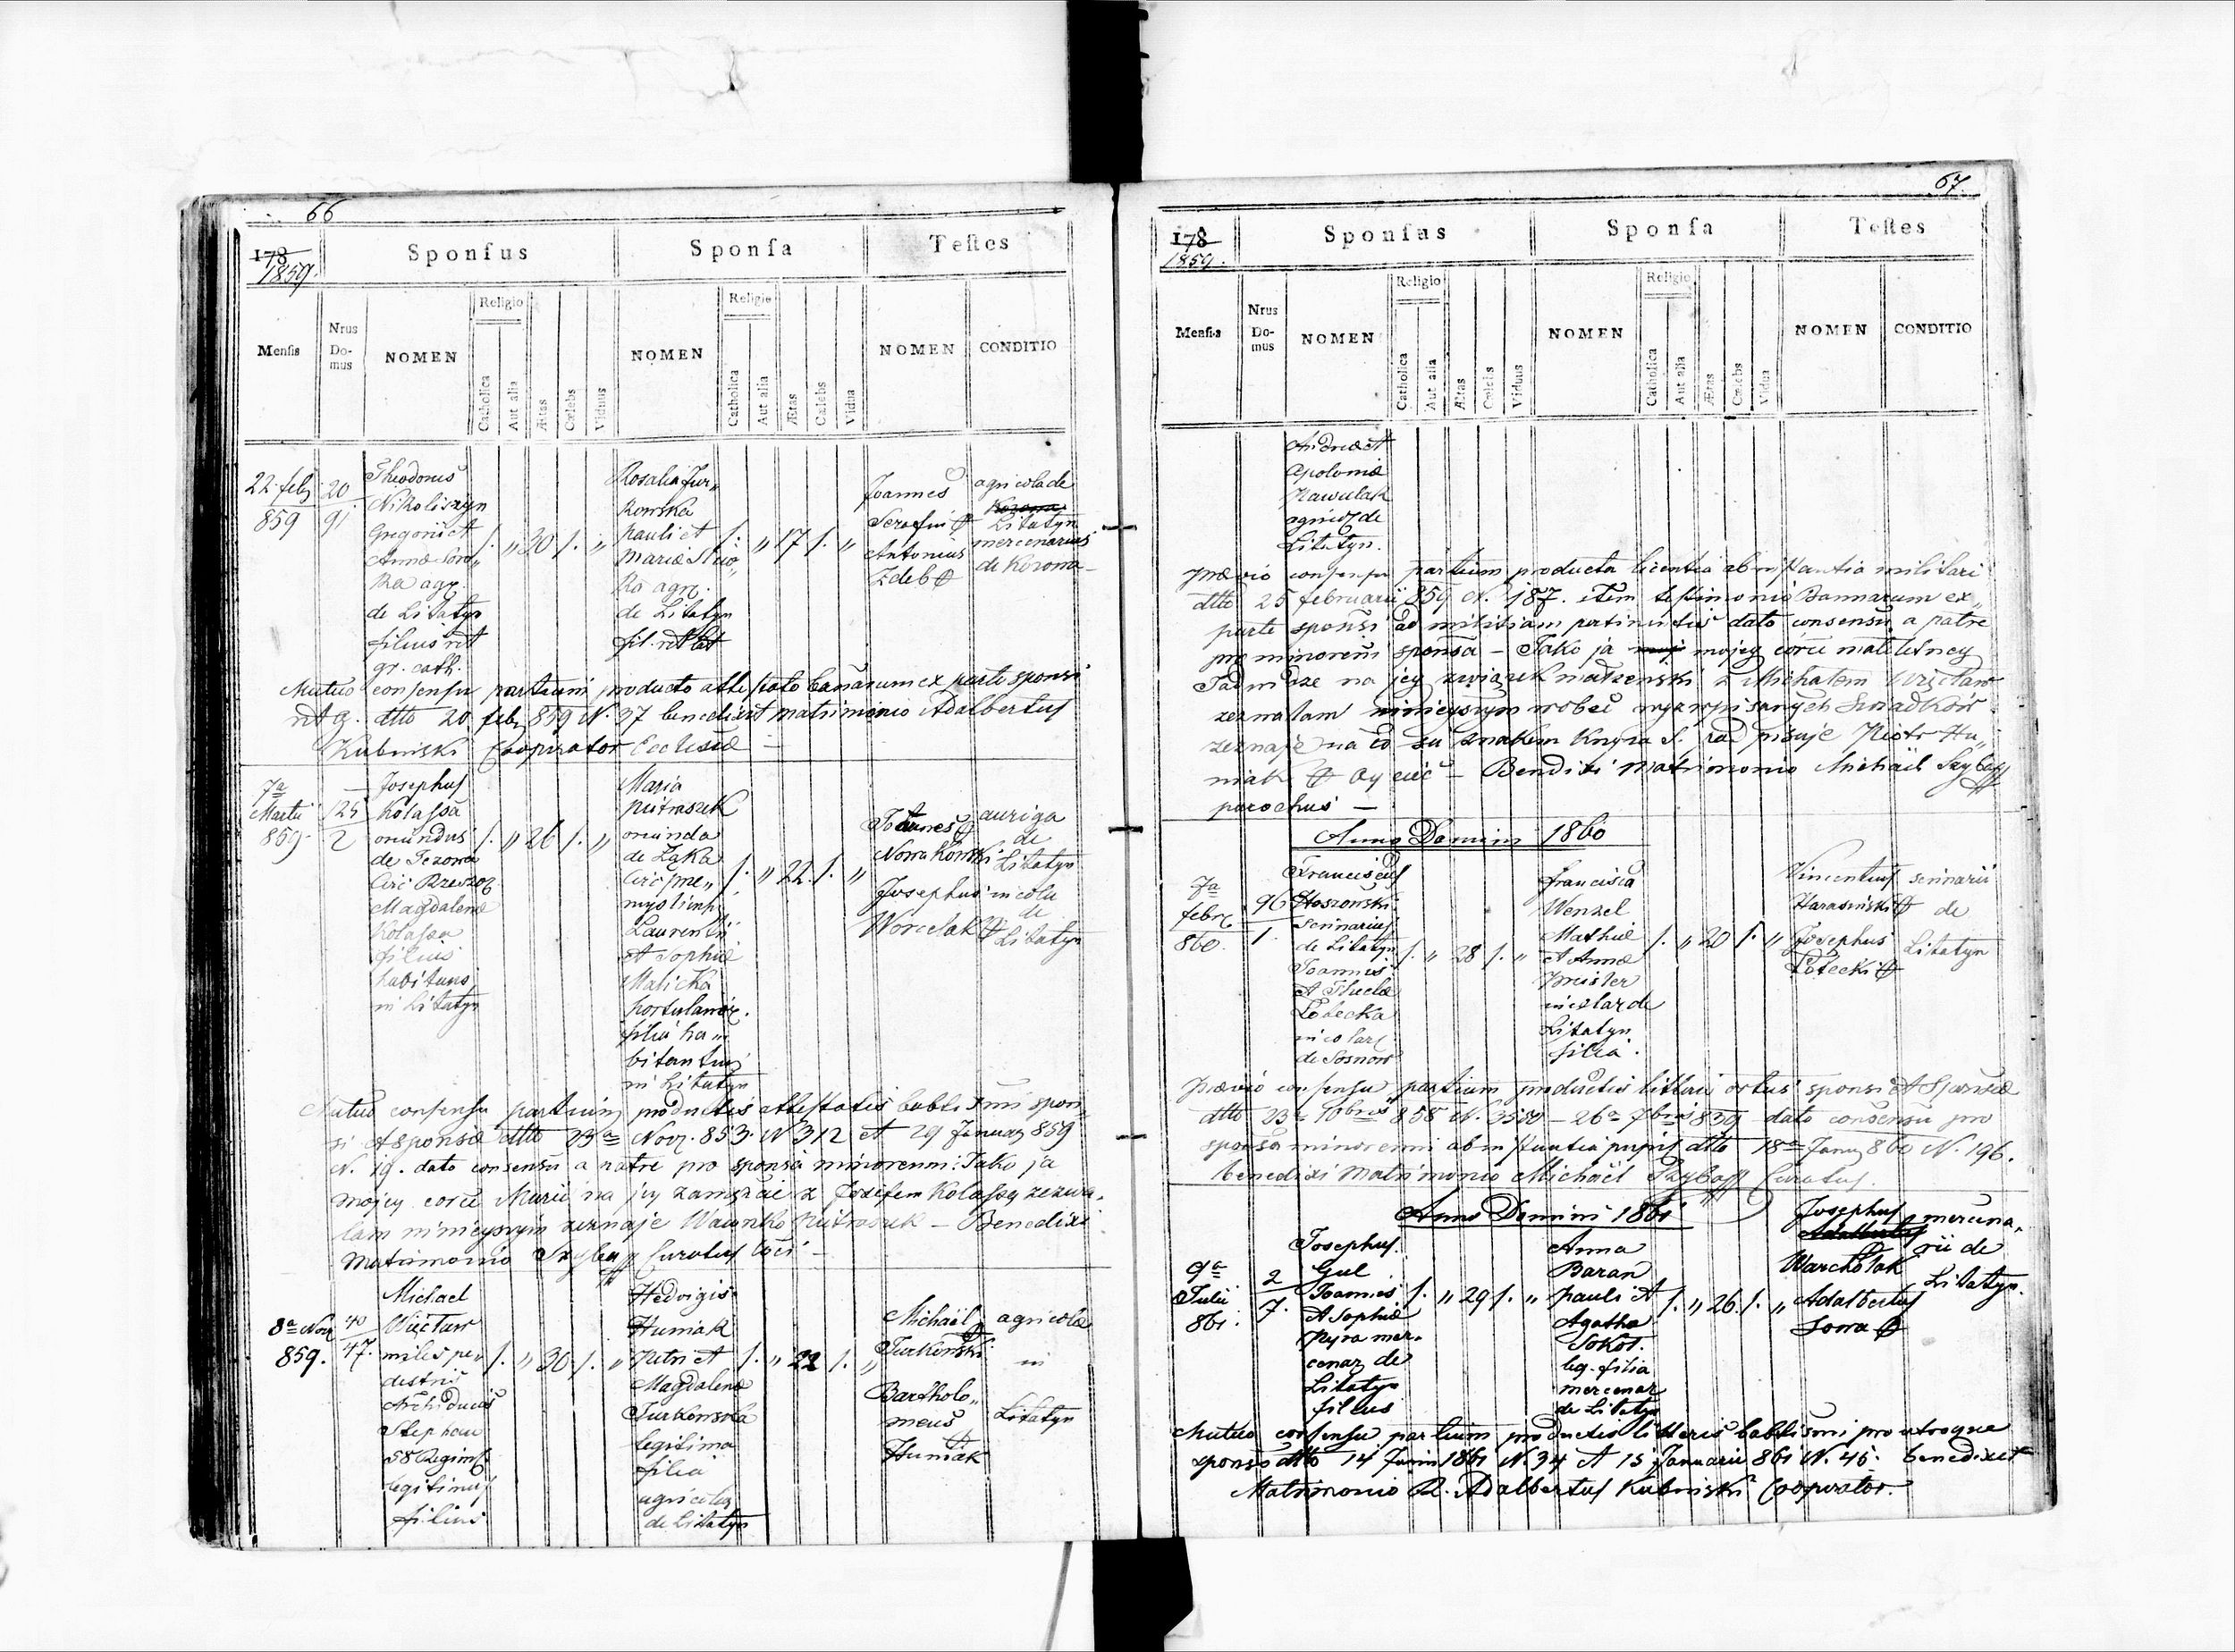 66
178
1859.
Sponſus
Sponſa
Teſtes
Menſis
Nrus Domus
NOMEN
Religio
Catholica
Aut alia
Ætas
Cœlebs
Viduus
NOMEN
Religio
Catholica
Aut alia
Ætas
Cœlebs
Vidua
NOMEN
CONDITIO
22 feb
859
20
91
Theodorus
Nikoliszyn
Gregorii et
Annæ
agr.
de Litatyn
filius
gr. cath.
1. „ 20 1. „
Rosalia Jur„
kowska
Pauli et
Mariæ
agr.
de Litatyn
1. „ 17 1. „
Joannes
Serafin
Antonius
Zdeb
agricola de
Litatyn
mercenarius
de Korowa
Mutuo consensu partium producto attestato bañarum ex parte sponsi
dtto 20 feb 859 N. 37 benedixit matrimonio Adalbertus
Kubinski Cooperator Ecclesiæ
7a
Martii
859
125
2
Josephus
Kolassa
oriundus
de Jezowa
Circ Rzeszo
Magdalenæ
Kolassa
filius
habitans
in Litatyn
1. „ 26 1. „
Maria
Pietraszek
oriunda
de Łąka
Circ Prze„
myslien
Laurentii
et Sophiæ
Malicka
hortulanor.
filia ha„
bitantiu
in Litatyn
1. „ 22. 1. „
Joannes
Nowakowski
Josephus
Worcelak
auriga
de
Litatyn
incola
de
Litatyn
Mutuo consensu partium productis attestatis babtismi spon„
si et sponsæ dtto 23a Nov. 853. N 312 et 29 January 859
N. 19. dato consensu a patre pro sponsa minorenni: Jako ja
mojey corce Marii na jey zamęzcie z Jozefem Kolassą zezwa„
lam niniejszym zeznaje Wawrzko Pietraszek – Benedixi
Matrimonio Szybaff Curatus loci –
8a Nov
859.
40
47.
Michael
Więcław
miles pe„
destris
Archiducis
Stephan
58 Regim
legitimus
filius
1. „ 30 1. „
Hedvigis
Humak
Petri et
Magdalenæ
Jurkowska
legitima
filia
agricolar
de Litatyn
1. „ 22 1. „
Michaël
Jurkowski
Bartholo„
meus
Humak
agricolæ
in
Litatyn
67.
178
1859.
Sponſus
Sponſa
Teſtes
Menſis
Nrus Domus
NOMEN
Religio
Catholica
Aut alia
Ætas
Cœlebs
Viduus
NOMEN
Religio
Catholica
Aut alia
Ætas
Cœlebs
Vidua
NOMEN
CONDITIO
Andreæ et
Apoloniæ
Pawulak
agricol de
Litatyn.
prævio consensu partium producta licentia ab instantia militari
dtto 25 februarii 859 N. 187. item testimonio Bannarum ex„
parte sponsi ad militiam pertinentis dato consensu a patre
pro minoreni sponsa – Jako ja mojey corce małoletney
Jadwidze na jey związek małzenski z Michałem Więcław
zezwalam niniejszym wobec wyzwpisanych Swiadków
zeznaje na co się znakem Krzyza S. podpisuje Piotr Hu„
mak Oyciec – Benedixi Matrimonio Michäel Szybaff
parochus –
Anno Domini 1860
7a
febr
860.
96
1.
Franciscus
Hoszowski
Seminarius
de Litatyn
Joannis
et Theclæ
Łotecka
incolar
de Sosnow
1. „ 28 1. „
Francisca
Wenzel
Mathiæ
et Annæ
Preister
incolar de
Litatyn
filia.
1. „ 20 1. „
Vincentius
Harasinski
Josephus
Łotecki
de
Litatyn
Prævio consensu partium productis litteris ortus sponsi et Sponsæ
dtto 23a 10bris 858 N. – 26a 7bris 859 dato consensu pro
sponsa minorenni ab instantia pupil dtto 18a Janu 860 N. 196.
benedixi Matrimonio Michäel Szybaff Curatus.
Anno Domini 1861
9a
Julii
861.
2
7.
Josephus
Gul
Joannis
et Sophiæ
Pyra mer„
cenar de
Litatyn
filius
1. „ 29 1. „
Anna
Baran
Pauli et
Agatha
Sokoł.
leg. filia
mercenar
de Litatyn
1. „ 26. 1. „
Josephus
Adalbertus
Warchołak
Adalbertus
Sowa
mercena„
rii de
Litatyn.
Mutuo consensu partium productis litteris babtismi pro utroque
sponso dtto 14 Junii 1861 N. 34 et 15 Januarii 861 N. 45. benedixit
Matrimonio R. Adalbertus Kubinski Cooperator.